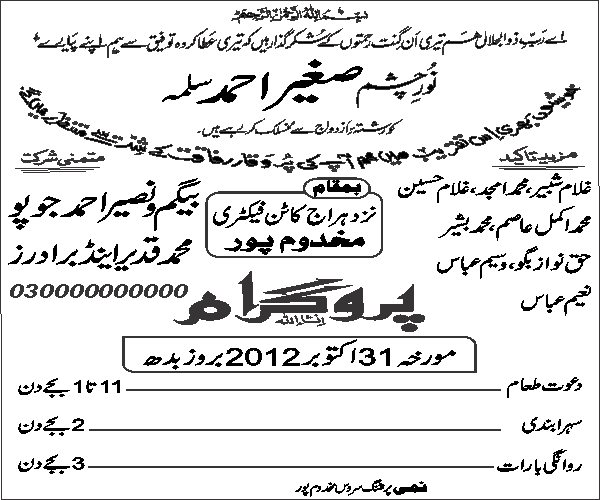 بسم اللہ الرحمن الرحیم
اے ربّ ذوالجلال ہم تیری اَن گنت رحمتوں کے شکر گذار ہیں کہ تیری عطا کردہ توفیق سے ہم اپنے پیارے
نورِ چشم صغیر احمد سلمہ
کو رشتہ ازدواج سے منسلک کر رہے ہیں۔
خوشیوں بھری اس تقریب میں ہم آپ کی پُر وقار رفاقت کے شدت سے منتظر رہیں گے
مزید تاکید
متمنی شرکت
غلام شبیر، محمد امجد، غلام حسین
محمد اکمل عاصم، محمد بشیر
حق نواز بگو، وسیم عباس
نعیم عباس
بمقام
نزد ہراج کاٹن فیکٹری
مخدوم پور
بیگم و نصیر احمد جوپو
محمد قدیر اینڈ برادرز
030000000000
پروگرام
انشاءاللہ
مورخہ 31 اکتوبر 2012 بروز بدھ
دعوت طعام 11 تا 1 بجے دن
سہرا بندی 2 بجے دن
روانگی بارات 3 بجے دن
نمی پرنٹنگ سروس مخدوم پور